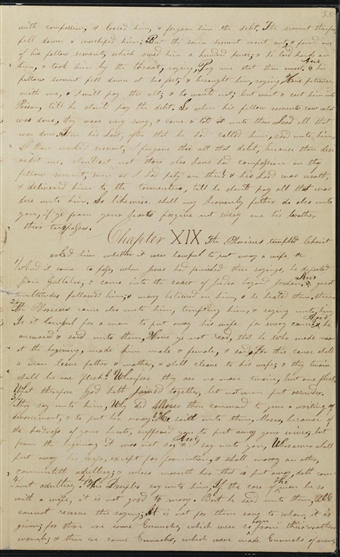 with compassion, & loosed him, & forgave him the debt. The servant therefore
fell down & worshiped him; But the same servant went out, & found one
of his fellow servants, which owed him a hundred pence; & he laid hands on
him, & took him by the throat, saying, Pay me that thou owest, & his
fellow servant fell down at his feet, & besought him, saying, Have patience
with me, & I will pay thee all; & he would not; but went & cast him into
Prison, till he should pay the debt. So when his fellow servants saw what
was done, they were very sorry, & came & told unto their Lord all that
was done. Then his Lord, after that he had called him, said unto him,
O thou wicked servant, I forgave thee all that debt, because thou desi
redst me, shouldest not thou also have had compassion on thy
fellow servant, even as I had pity on thee; & his Lord was wroth,
& delivered him to the tormentors, till he should pay all that was
due unto him. So likewise shall my heavenly father do also unto
you, if ye from your hearts forgive not every one his brother
their trespasses.
Chapter XIX The Pharisees tempted Christ
asked him whether it were lawful to put away a wife &c
And it came to pass, when Jesus had finished these sayings, he departed
from Gallilee, & came into the coast of Judea beyond Jordan, & great
multitudes followed him, & many believed on him, & he healed them there.
The Pharisees came also unto him, tempting him, & saying unto him,
Is it lawful for a man to put away his wife for every cause? & he
answered & said unto them, Have ye not read, that he who made man
at the beginning, made him male & female, & said, for this cause shall
a man leave father & mother, & shall cleave to his wife; & they twain
shall be one flesh? Wherefore they are no more twain, but one flesh.
What therefore God hath joined together, let not man put asunder.
They say unto him, Why did Moses then command to give a writing of
divorcement, & to put her away? He said unto them, Moses, because of
the hardness of your hearts, suffered you to put away your wives, but
from the beginning it was not so; & I say unto you, Whosoever shall
put away his wife, except for fornication, & shall marry another,
committeth adultery; & whoso marrieth her that is put away, doth com
mit adultery. His Disciples say unto him, If the case of the man be so
with a wife, it is not good to marry. But he said unto them, All
cannot receive this saying; it is not for them save to whom it is
given; for there are some Eunuchs, which were so born from their mothers
womb; & there are some Eunuchs, which were made Eunuchs of men;